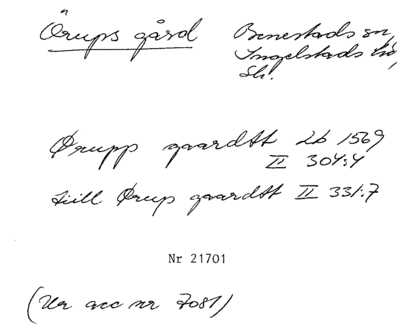 Örups gård
Benestads sn,
Ingelstads hd,
Sk.
Ørupp gaardtt Lb 1569
II 304:4
till Ørup gaardtt II 331:7
Nr 21701
(Ur acc nr 7081)